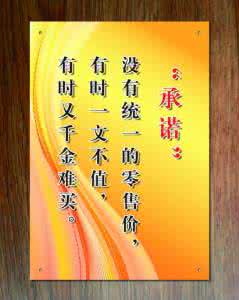 “承诺”
没有统一的零售价，
有时一文不值，
有时又千金难买。